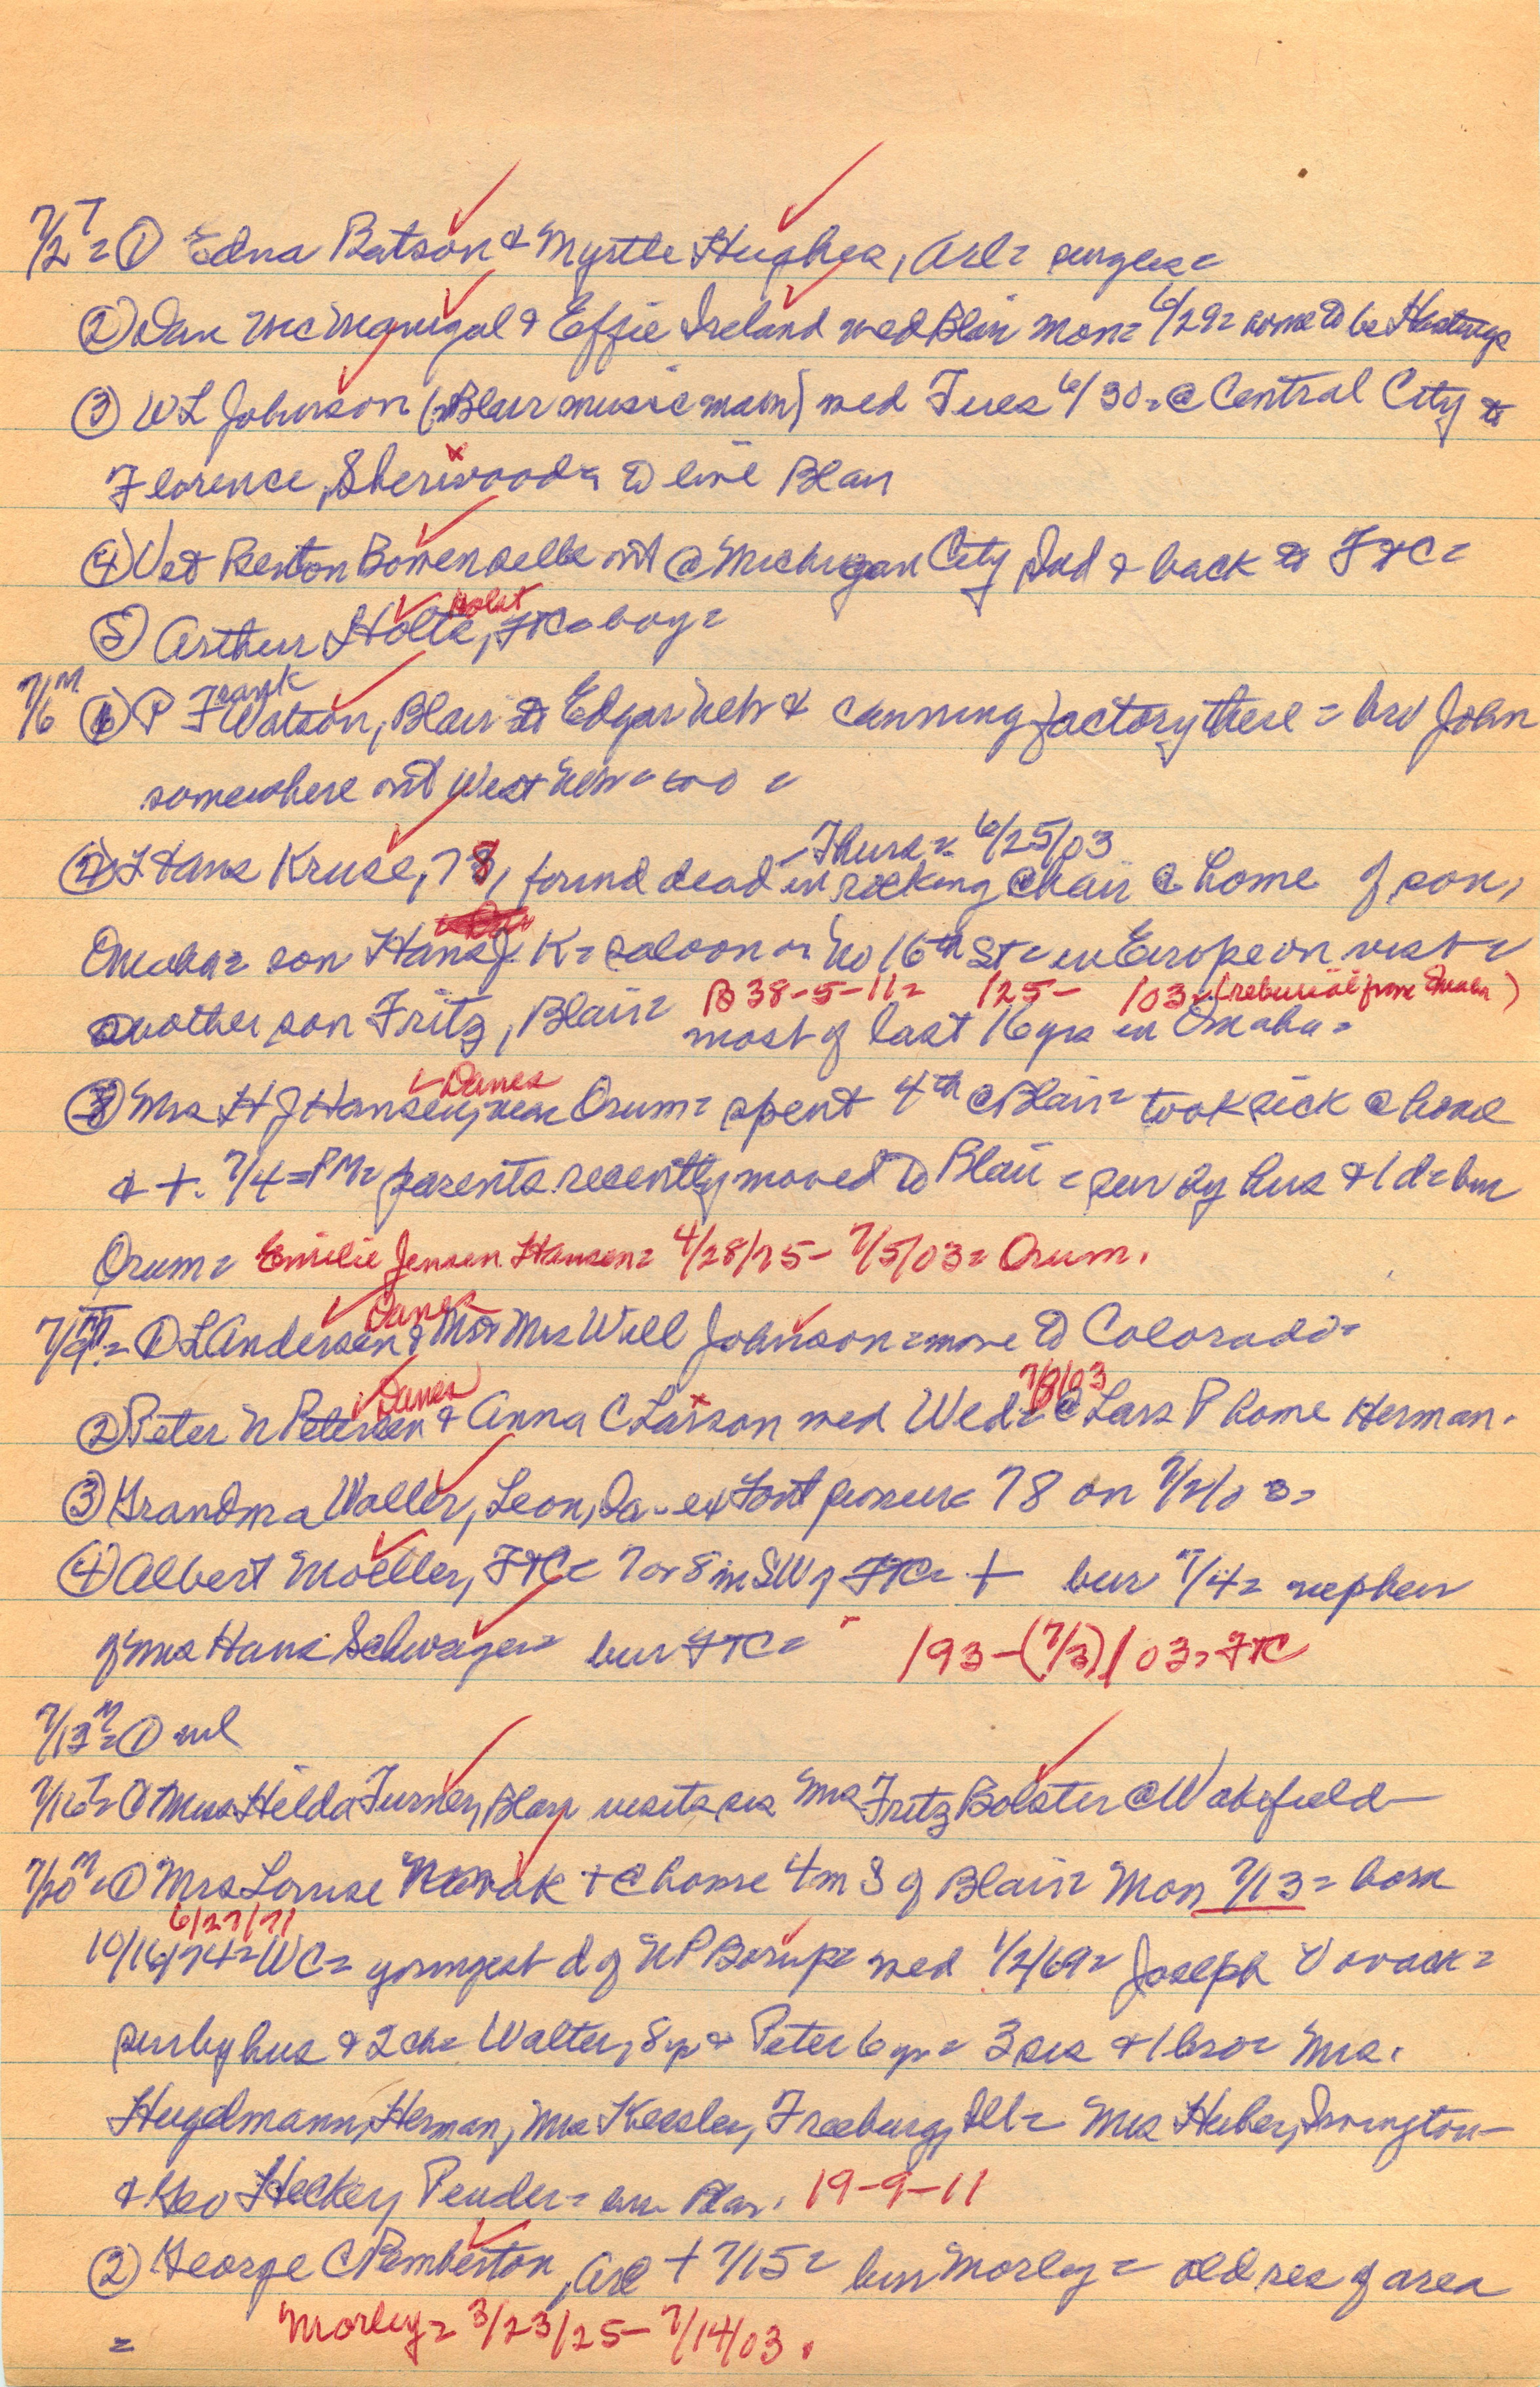 7/2 T = ① Edna Batson & Myrtle Hughes, Arl =
② Dan McManigal & Effie Ireland med Blair Mon = 6/29 = home to be Hastings
③ W L Johnson (Blair music man) med Tues 6/30 = @ Central City to
Florence Sherwood = to live Blair
④ Vet Benton Bowen sells out @ Michigan City Ind & back to FTC =
Holst
⑤ Arthur Holtz, FTC = boy =
7/6 M ① P Frank Watson, Blair to Edgar Neb & canning factory there = bro John
somewhere out West Neb = too =
- Thurs = 6/25/03
② Hans Kruse, 78, found dead in rocking chair @ home of son,
Omaha = son Hans J. K = saloon on No 16th St = in Europe on visit =
B 38-5-11 = 125 - 103 = (reburial from Omaha)
another son Fritz, Blair = most of last 16 yrs in Omaha =
Danes
③ Mrs H J Hansen, near Orum = spent 4th @ Blair = took sick @ home
& +. 7/4 = PM = parents recently moved to Blair = sur by hus & 1 d = bur
Orum = Emilie Jensen Hansen = 4/28/75 - 7/5/03 = Orum.
Danes
7/9 T = ① L Andersen & M/M Mrs Will Johnson = move to Colorado =
Danes 7/8/03
② Peter N Petersen & Anna C Larson med Wed = @ Lars P home Herman.
③ Grandma Waller, Leon, Ia - ex Font pioneer = 78 on 7/2/03 =
④ Albert Moeller, FTC = 7 or 8 m SW of FTC = + bur 7/4 = nephew
of Mrs Hans Schwager = bur FTC = 193 - (7/3)/03 = FTC
7/13 M = ① nil
7/16 T = ① Miss Hilda Turner, Blair visits sis Mrs Fritz Bolster @ Wakefield -
7/20 M = ① Mrs Louise Novak + @ home 4 m S of Blair = Mon 7/13 = born
6/27/71
10/16/74 = WC = youngest d of N P Borup = med 1/2/69 = Joseph Vovack =
sur by hus & 2 ch = Walter, 8 yr & Peter 6 yr = 3 sis & 1 bro = Mrs.
Hugelmann, Herman, Mrs Keesler, Freeburg, Ill = Mrs Huber, Irvington -
& Geo Heckey Pender = bur Blair. 19-9-11
② George C Pemberton, Arl + 7/15 = bur Morley = old res of area
= Morley = 3/23/25 - 7/14/03.